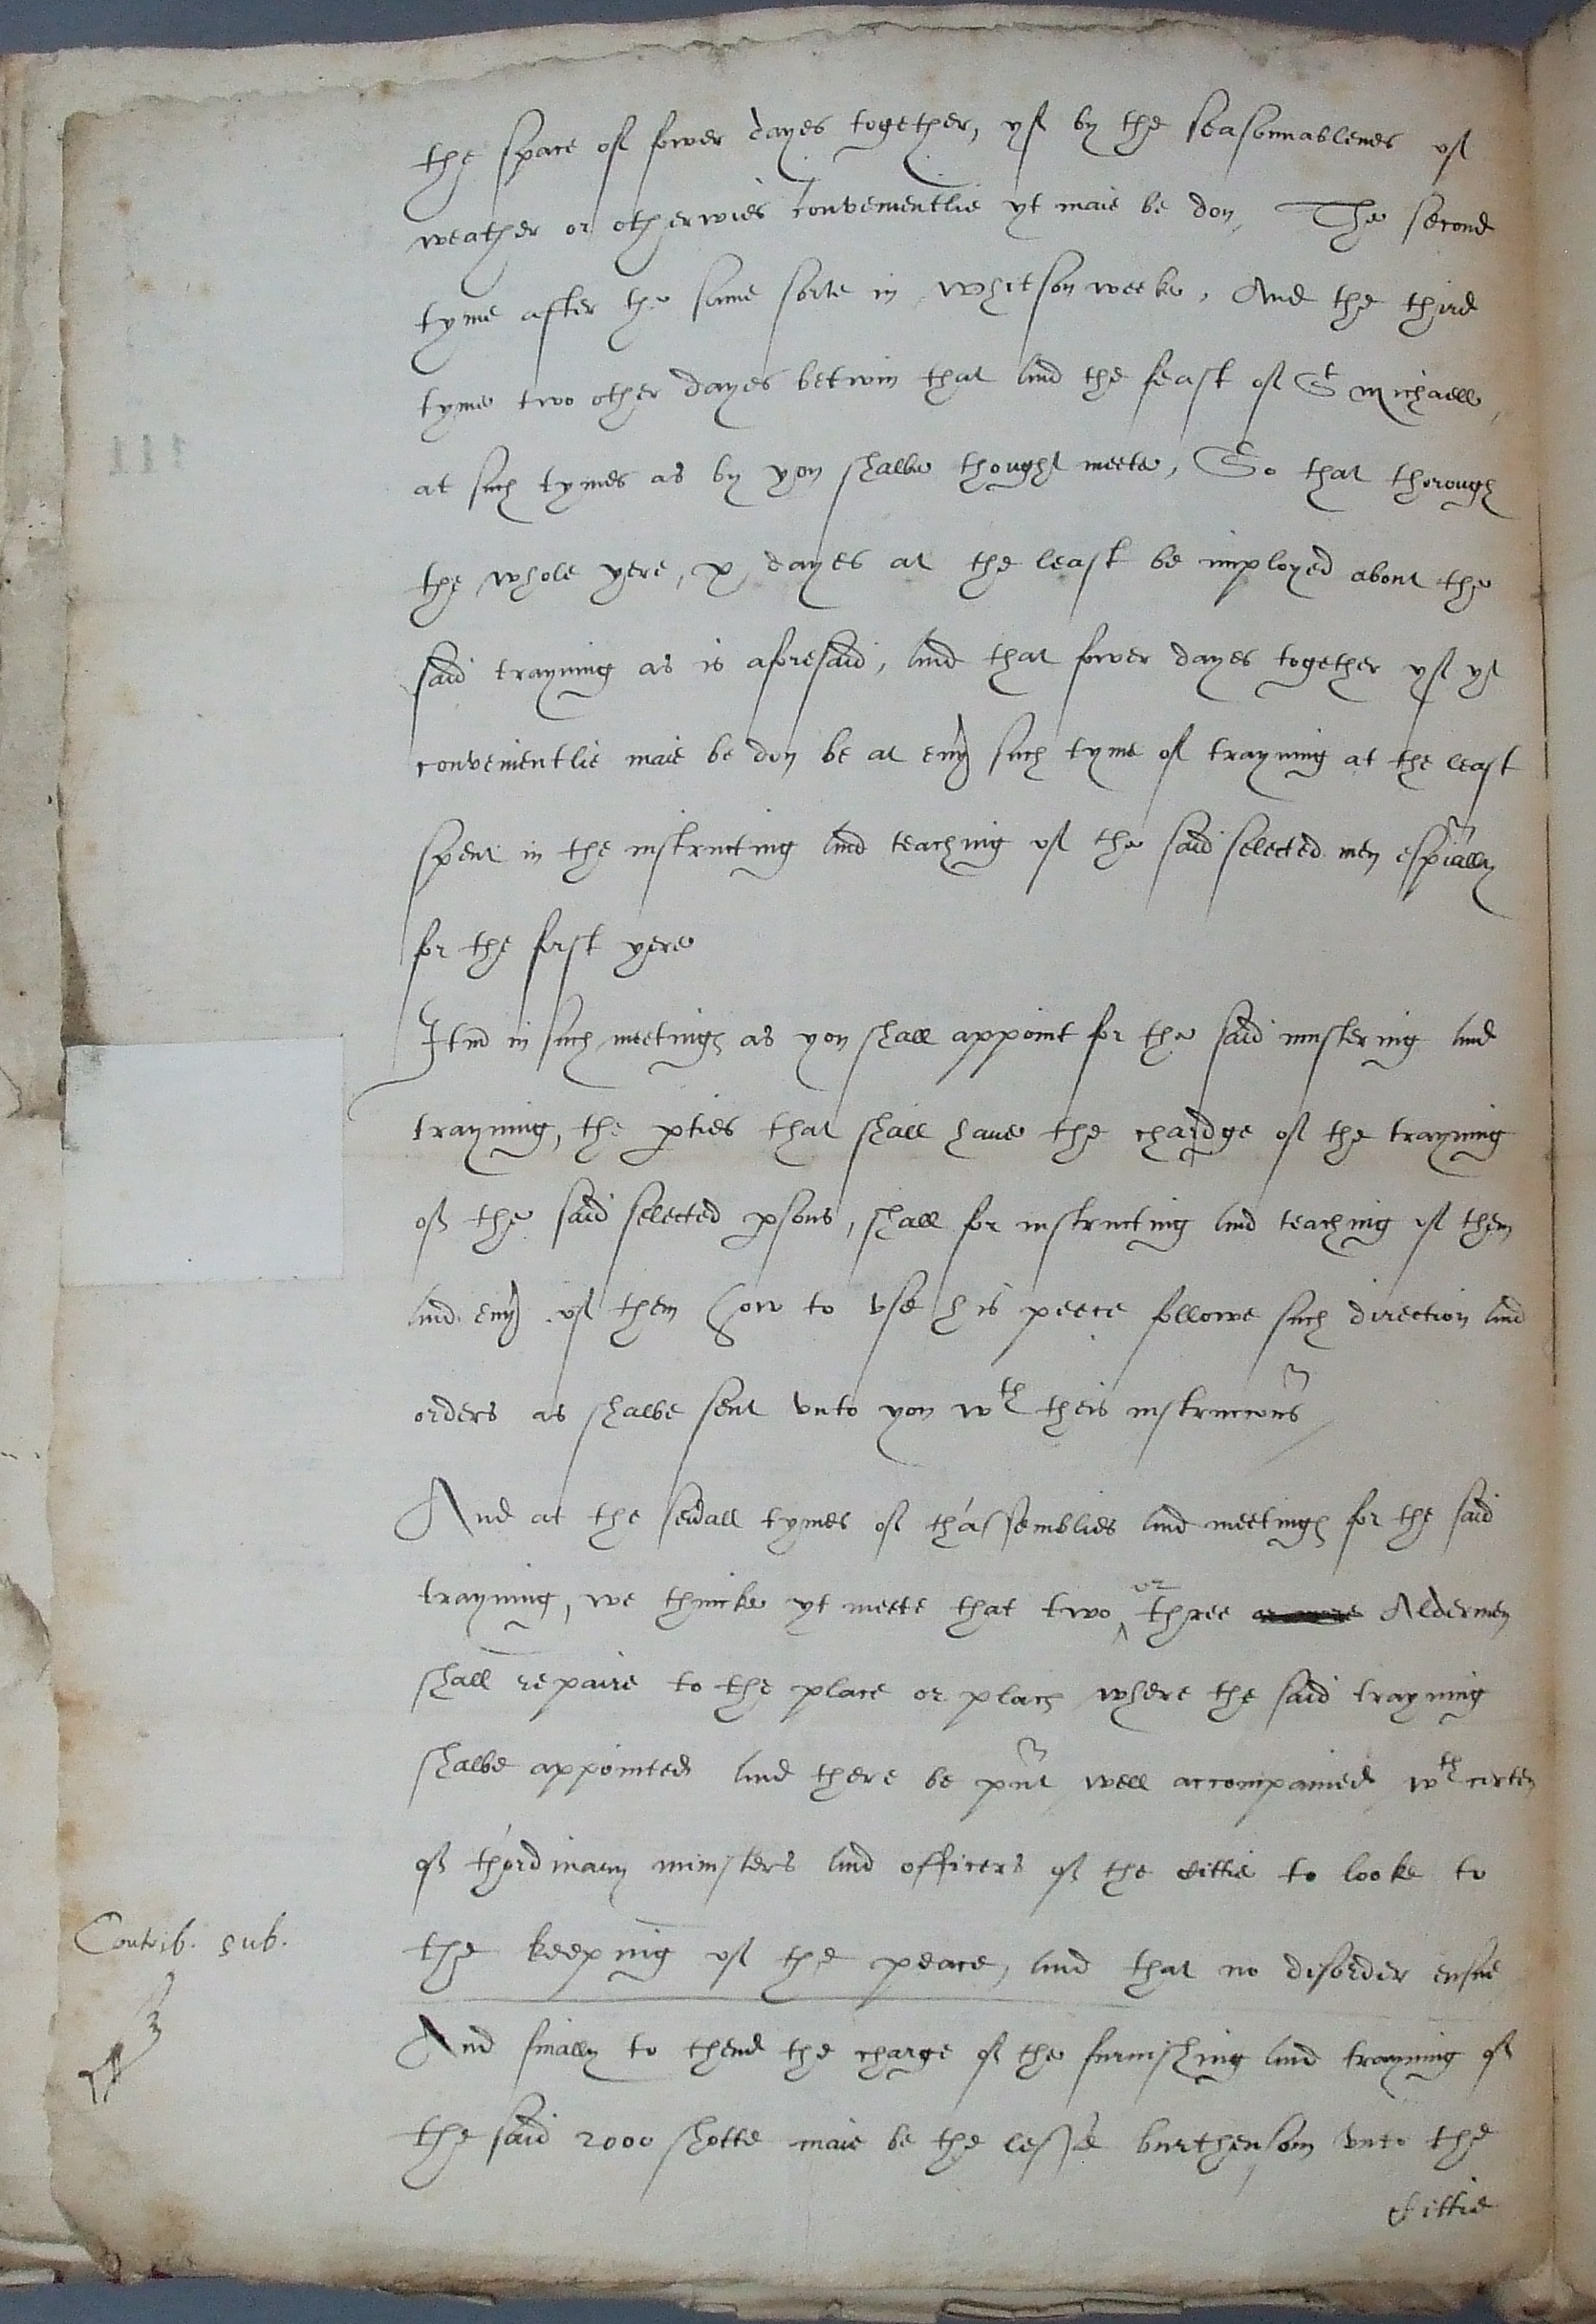 the space of fower dayes together, yf by the seasonnablenes of
weather or otherwies convenientlie yt maie be don, The second
tyme after the same sorte in whitson weeke, And the third
tyme two other dayes betwin that and the feast of St Michaell,
at such tymes as by you shalbe thought meete, So that thorough
the whole yere, x dayes at the least be imployed about the
said trayning as is aforesaid, and that fower dayes together yf yt
convenientlie maie be don be at eny such tyme of trayning at the least
spent in the instructing and teaching of the said selected men espially
for the first yere
Itm in such meetings as you shall appoint for the said mustering and
trayning, the pties that shall haue the chardge of the trayning
of the said selected psons, shall for instructing and teaching of them
and euy of them how to vse his peece followe such direction and
orders as shalbe sent vnto you wth theis instruccons
And at the seuall tymes of thassemblies and meetings for the said
trayning, we thincke yt meete that two or three Aldermen
shall repaire to the place or places where the said trayning
shalbe appointed and there be pnt well accompanied wth certen
of thordinary ministers and officers of the cittie to looke to
Contrib. sub.
the keeping of the peace, and that no disorder ensue
And finally to thend the charge of the furnishing and trayning of
the said 2000 shotte maie be the lesse burthensom vnto the
cittie
111